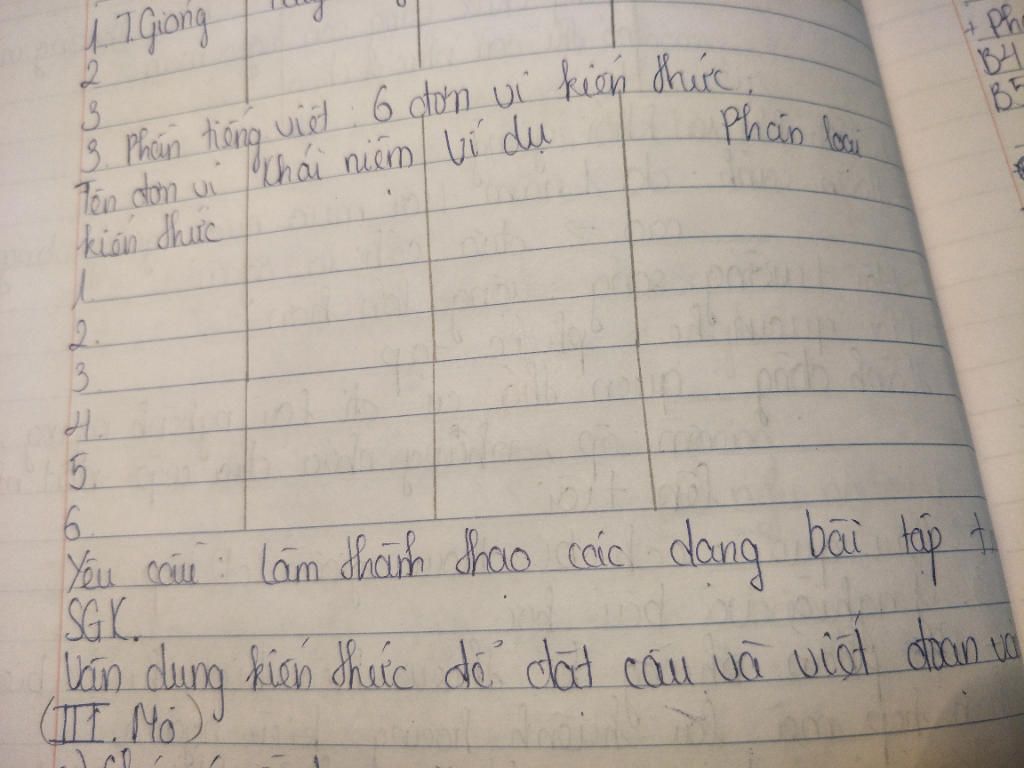 1. T Giong
2
3
3. Phần tiếng việt: 6 đơn vị kiến thức.
Tên đơn vị Khái niệm Ví dụ Phân loại
kiến thức
1
2.
3
4.
5.
6.
Yêu cầu: làm thành thạo các dạng bài tập
SGK.
Vận dụng kiến thức để đặt câu và viết đoạn
(III.
+ Ph
B4
B5